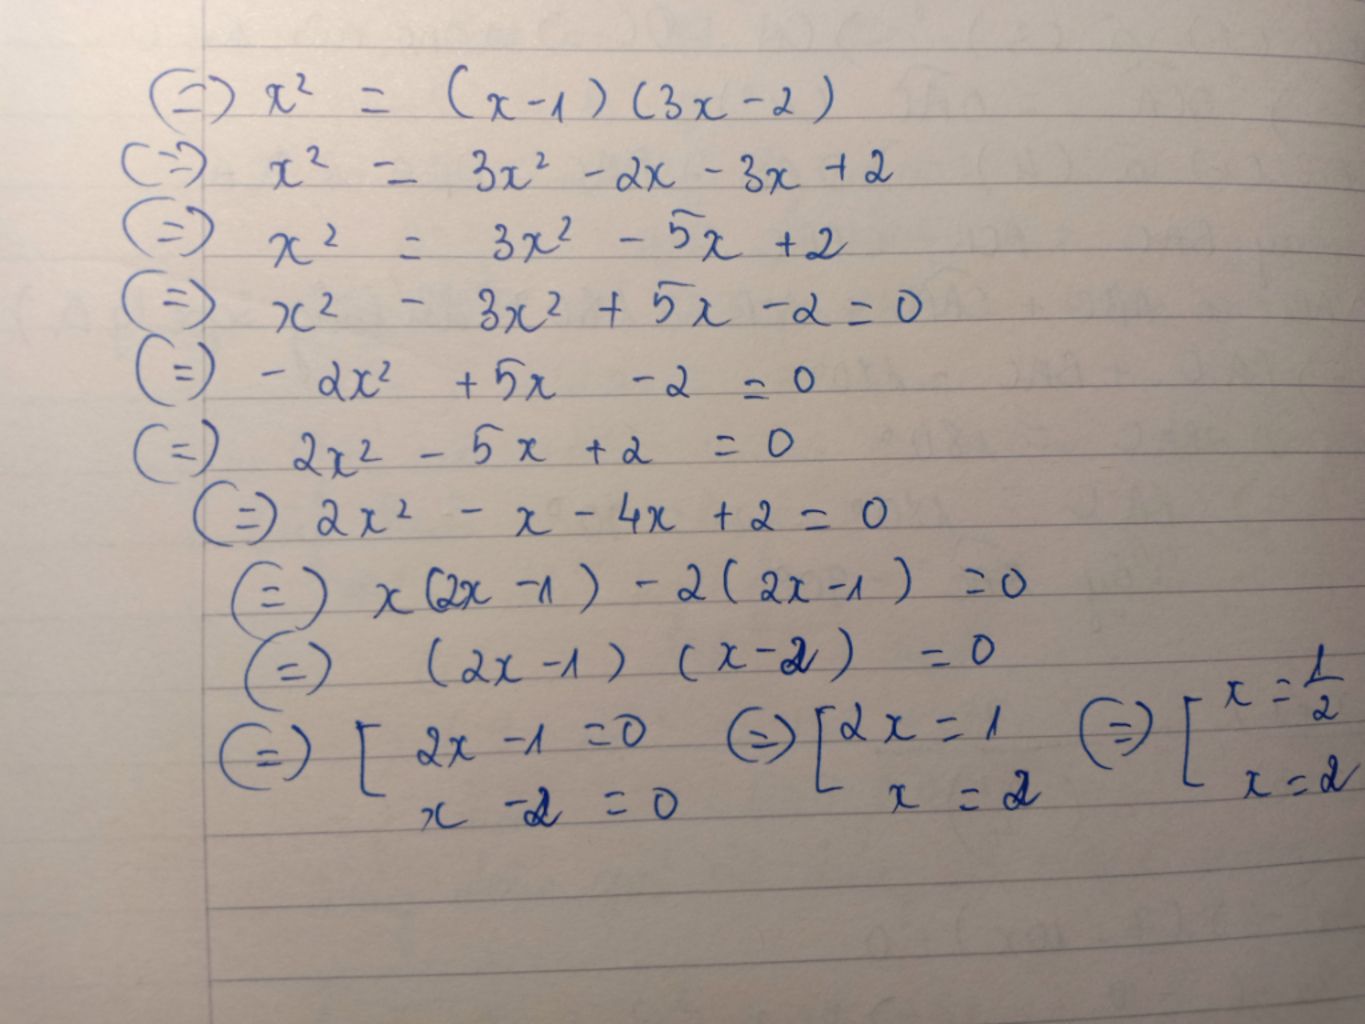 (=) x² = (x-1)(3x-2)
(=) x² = 3x² - 2x - 3x + 2
(=) x² = 3x² - 5x + 2
(=) x² - 3x² + 5x - 2 = 0
(=) - 2x² + 5x - 2 = 0
(=) 2x² - 5x + 2 = 0
(=) 2x² - x - 4x + 2 = 0
(=) x(2x - 1) - 2(2x - 1) = 0
(=) (2x - 1) (x - 2) = 0
(=) [ 2x - 1 = 0 (=) [ 2x = 1 (=) [ x = 1/2
x - 2 = 0 x = 2 x = 2